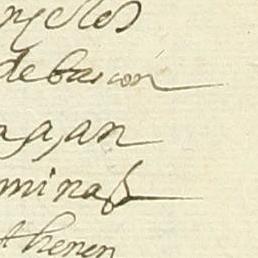 ngeles
de bascon
agan
minas
thenen